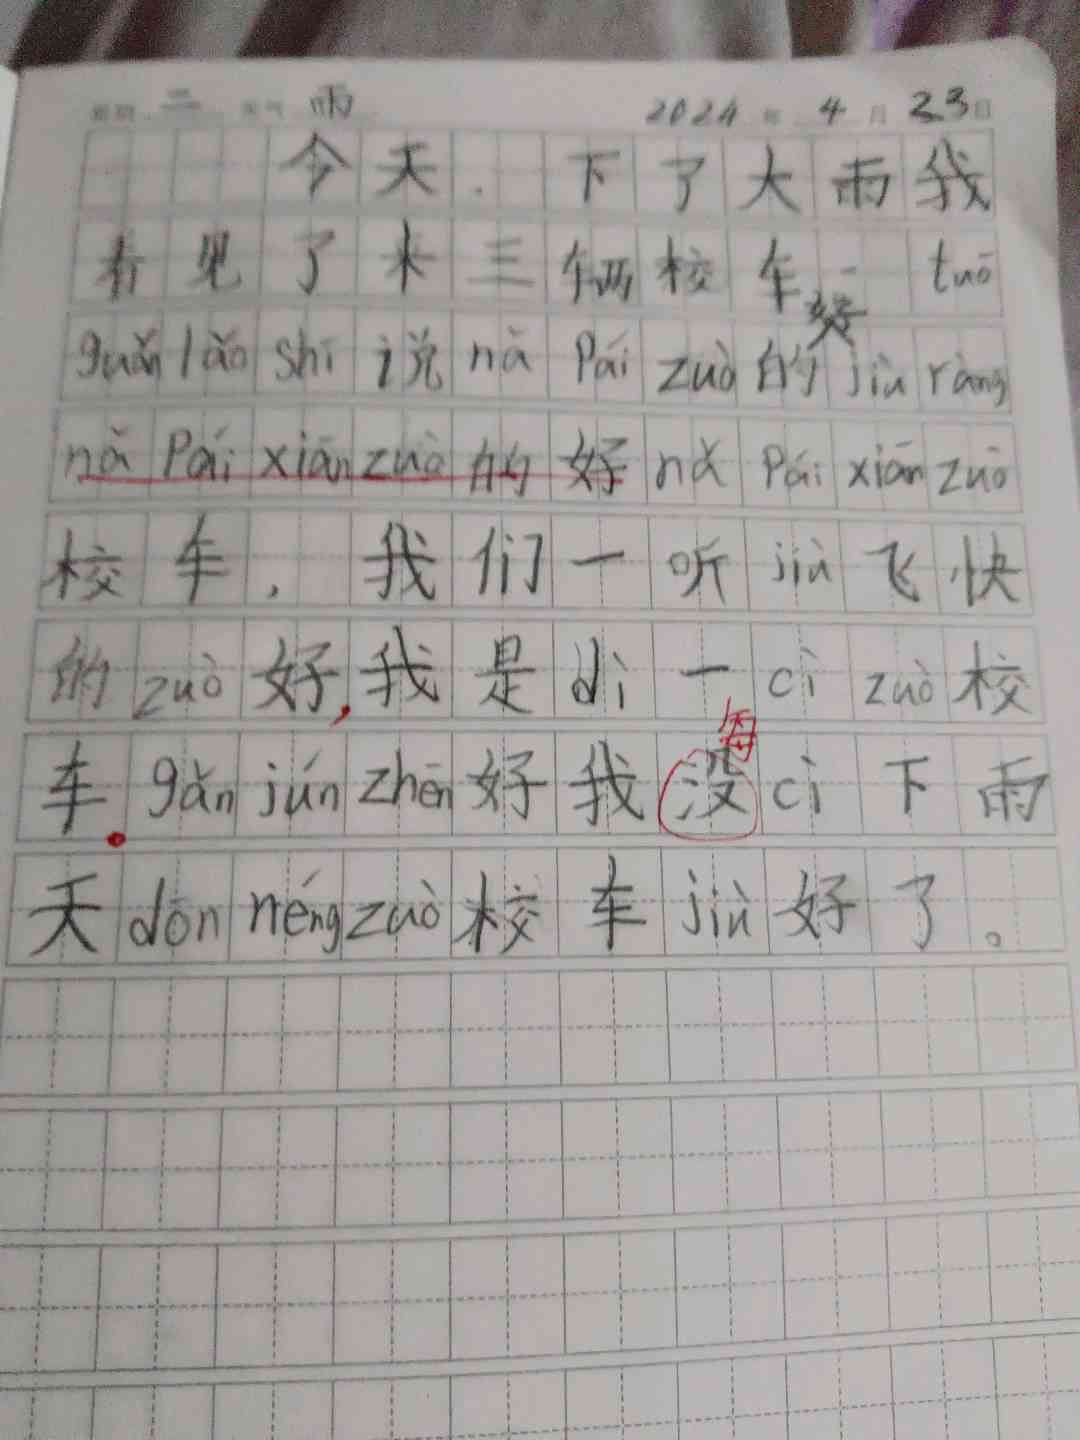 二 雨 2024 年 4 月 23 日
今天.下了大雨我
看见了来三辆校车 tuō
好
guǎn lǎo shī 说 nǎ Pái zuò 的 jiù ràng
nǎ Pái xiān zuò 的好 nǎ Pái xiān zuò
校车,我们一听 jiù 飞快
的 zuò 好,我是 dì 一 cì zuò 校
每
车. gǎn jún zhēn 好我没 cì 下雨
天 dōn néng zuò 校车 jiù 好了。